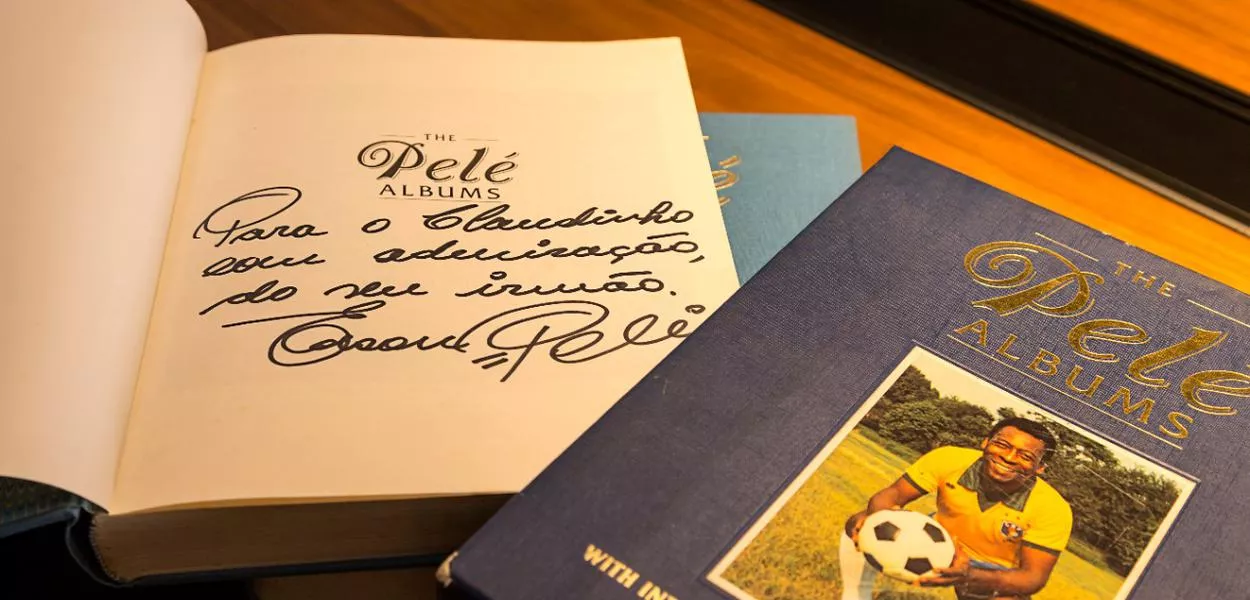 THE
Pelé
ALBUMS
Para o Claudinho
com admiração,
do seu irmão.
Edson Pelé
THE
Pelé
ALBUMS
WITH